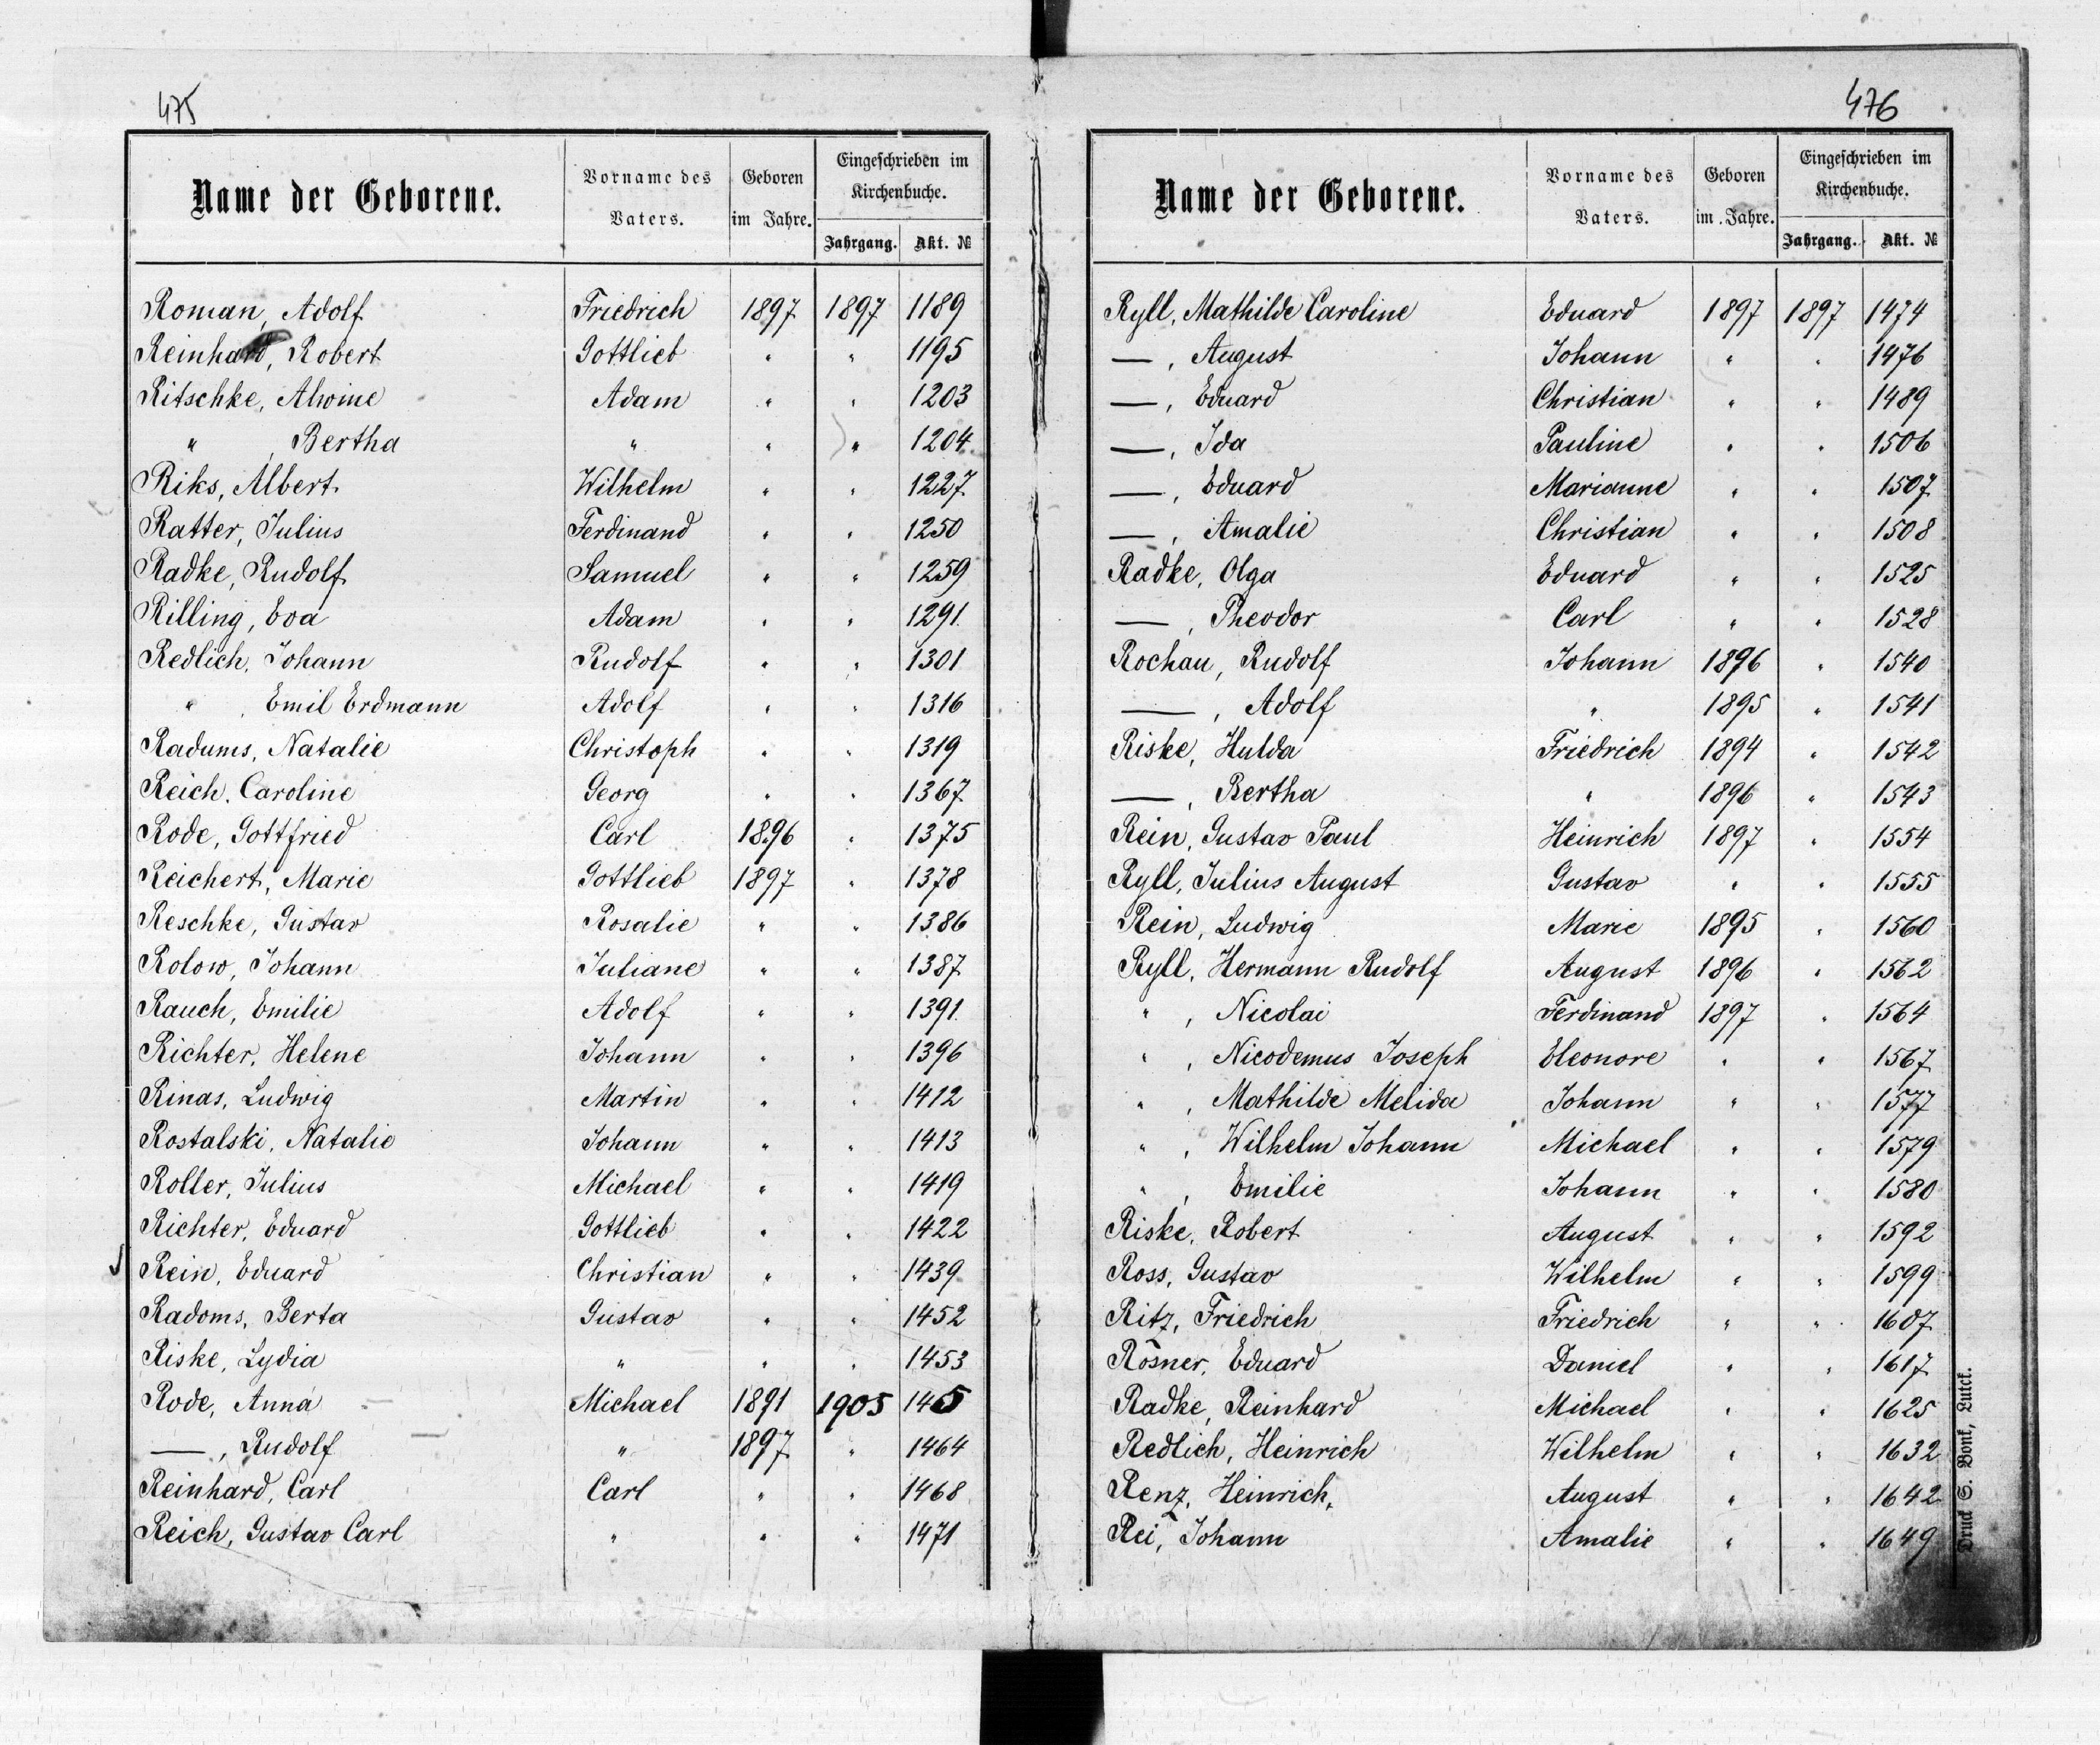 475
Name der Geborene. Vorname des Vaters. Geboren im Jahre. Eingeschrieben im Kirchenbuche. Jahrgang. Akt. №
Roman, Adolf Friedrich 1897 1897 1189
Reinhard, Robert Gottlieb " " 1195
Ritschke, Alwine Adam " " 1203
" , Bertha " " " 1204
Riks, Albert Wilhelm " " 1227
Ratter, Julius Ferdinand " " 1250
Radke, Rudolf Samuel " " 1259
Rilling, Eva Adam " " 1291
Redlich, Johann Rudolf " " 1301
" , Emil Erdmann Adolf " " 1316
Radums, Natalie Christoph " " 1319
Reich, Caroline Georg " " 1367
Rode, Gottfried Carl 1896 " 1375
Reichert, Marie Gottlieb 1897 " 1378
Reschke, Gustav Rosalie " " 1386
Rolow, Johann Juliane " " 1387
Rauch, Emilie Adolf " " 1391
Richter, Helene Johann " " 1396
Rinas, Ludwig Martin " " 1412
Rostalski, Natalie Johann " " 1413
Roller, Julius Michael " " 1419
Richter, Eduard Gottlieb " " 1422
Rein, Eduard Christian " " 1439
Radoms, Berta Gustav " " 1452
Riske, Lydia " " " 1453
Rode, Anna Michael 1891 1905 145
— , Rudolf " 1897 " 1464
Reinhard, Carl Carl " " 1468
Reich, Gustav Carl " " " 1471
476
Name der Geborene. Vorname des Vaters. Geboren im Jahre. Eingeschrieben im Kirchenbuche. Jahrgang. Akt. №
Ryll, Mathilde Caroline Eduard 1897 1897 1474
— , August Johann " " 1476
— , Eduard Christian " " 1489
— , Ida Pauline " " 1506
— , Eduard Marianne " " 1507
— , Amalie Christian " " 1508
Radke, Olga Eduard " " 1525
— , Theodor Carl " " 1528
Rochau, Rudolf Johann 1896 " 1540
— , Adolf " 1895 " 1541
Riske, Hulda Friedrich 1894 " 1542
— , Bertha " 1896 " 1543
Rein, Gustav Paul Heinrich 1897 " 1554
Ryll, Julius August Gustav " " 1555
Rein, Ludwig Marie 1895 " 1560
Ryll, Hermann Rudolf August 1896 " 1562
" , Nicolai Ferdinand 1897 " 1564
" , Nicodemus Joseph Eleonore " " 1567
" , Mathilde Melida Johann " " 1577
" , Wilhelm Johann Michael " " 1579
" , Emilie Johann " " 1580
Riske, Robert August " " 1592
Ross, Gustav Wilhelm " " 1599
Ritz, Friedrich Friedrich " " 1607
Rösner, Eduard Daniel " " 1617
Radke, Reinhard Michael " " 1625
Redlich, Heinrich Wilhelm " " 1632
Renz, Heinrich August " " 1642
Rei, Johann Amalie " " 1649
Druck S. Bonk, Lutck.